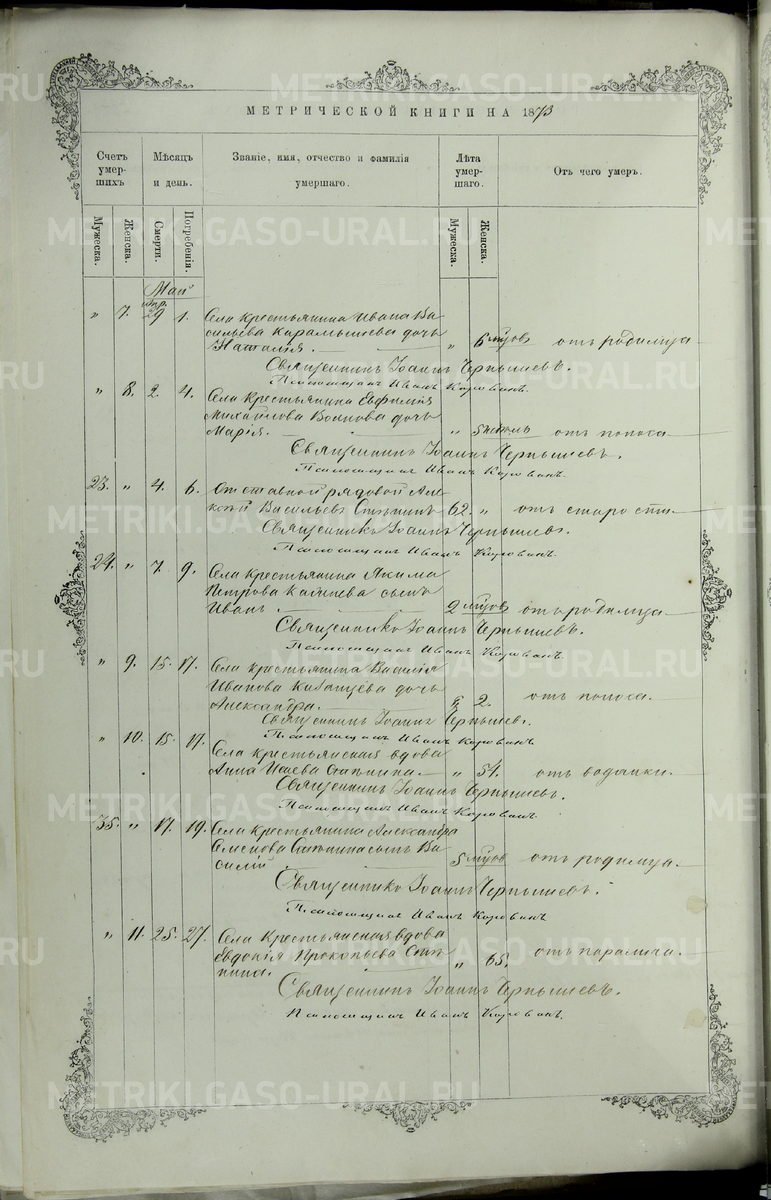 МЕТРИЧЕСКОЙ КНИГИ НА 1873
Счетъ умер-шихъ Мѣсяцъ и день. Званіе, имя, отчество и фамилія умершаго. Лѣта умер-шаго. Отъ чего умеръ.
Мужеска. Женска. Смерти. Погребенія. Мужеска. Женска.
Май
апр.
" 7. 29 1. Села крестьянина Ивана Ва-
сильева Карамышева дочь
Наталія. " 6 мѣсяцов отъ родимца
Священникъ Іоаннъ Чернышевъ.
Псаломщикъ Иванъ Коровинъ.
" 8. 2. 4. Села крестьянина Евфимія
Михайлова дочь
Марія. " 5 недѣль отъ поноса
Священникъ Іоаннъ Чернышевъ.
Псаломщикъ Иванъ Коровинъ.
23. " 4. 6. Отставной рядовой Але-
ксѣй Васильевъ Стяпинъ 62. " отъ старости.
Священникъ Іоаннъ Чернышевъ.
Псаломщикъ Иванъ Коровинъ.
24. " 7. 9. Села крестьянина Якима
Петрова сынъ
Иванъ. 2 мѣсяцов отъ родимца
Священникъ Іоаннъ Чернышевъ.
Псаломщикъ Иванъ Коровинъ.
" 9. 15. 17. Села крестьянина Василія
Иванова дочь
Александра. " 2. отъ поноса.
Священникъ Іоаннъ Чернышевъ.
Псаломщикъ Иванъ Коровинъ
" 10. 15. 17. Села крестьянская вдова
Анна Исаева " 54. отъ водянки.
Священникъ Іоаннъ Чернышевъ.
Псаломщикъ Иванъ Коровинъ.
35. " 17. 19. Села крестьянина Александра
Семенова сынъ Ва-
силій 5 мѣсяцов отъ родимца.
Священникъ Іоаннъ Чернышевъ.
Псаломщикъ Иванъ Коровинъ
" 11. 25. 27. Села крестьянская вдова
Евдокія Прокопьева
" 65. отъ паралича.
Священникъ Іоаннъ Чернышевъ.
Псаломщикъ Иванъ Коровинъ.
METRIKI.GASO-URAL.RU